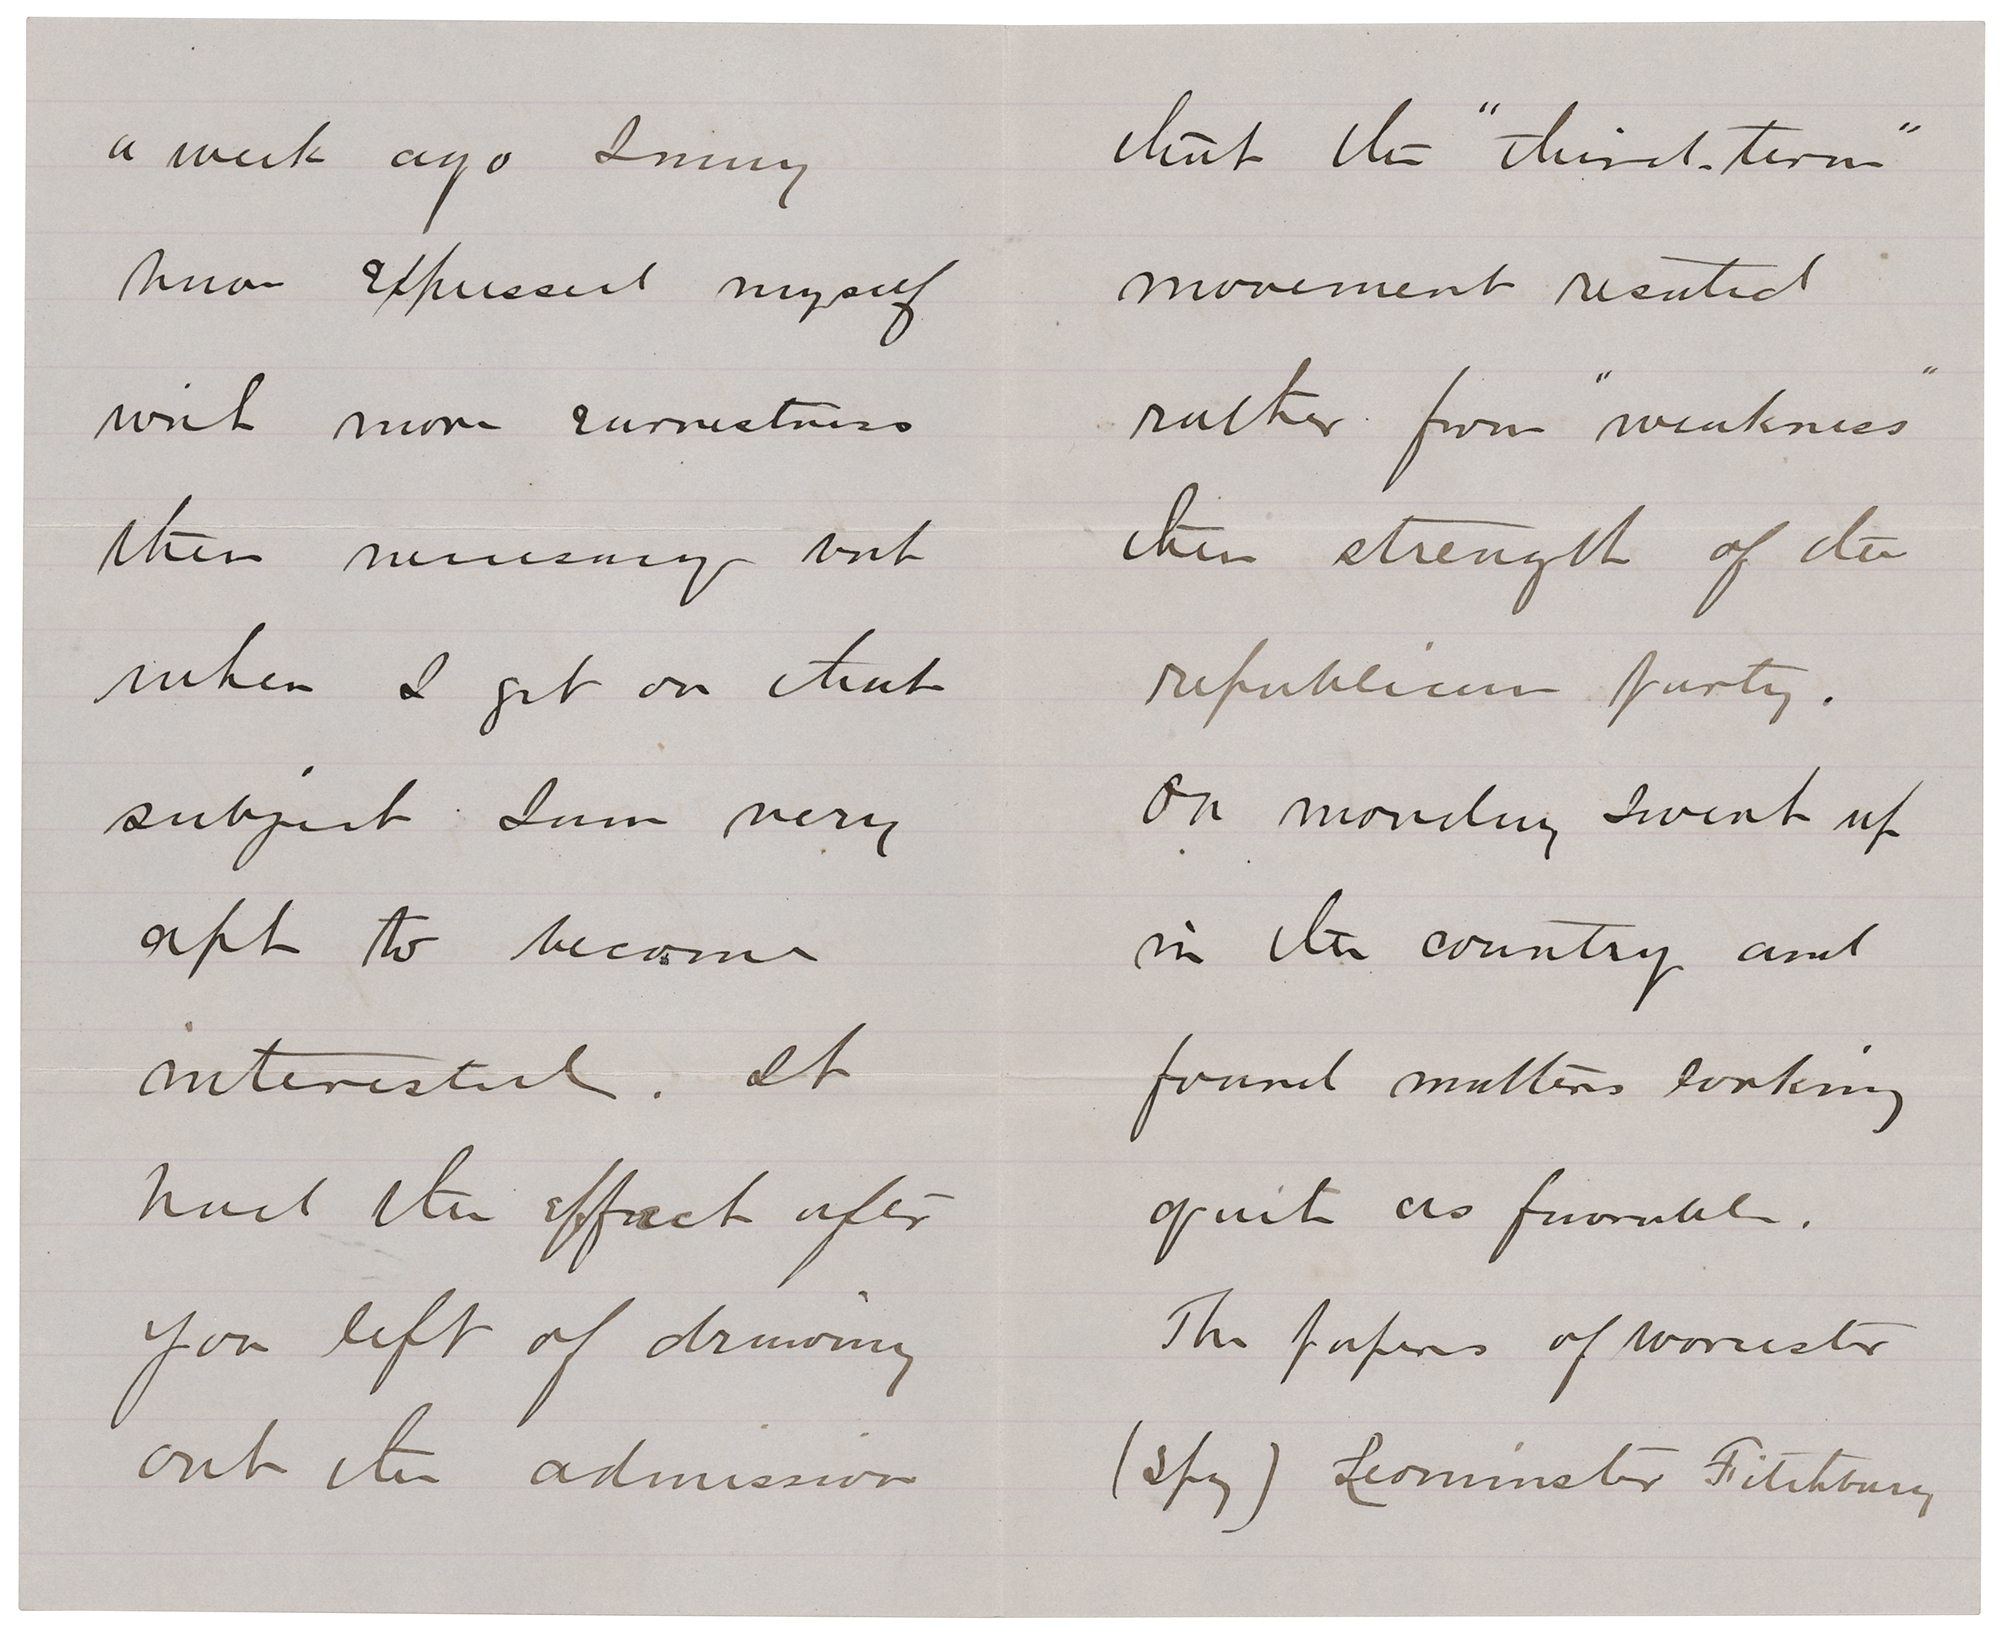 a week ago I may
have expressed myself
with more earnestness
then necessary but
when I get on that
subject I am very
apt to become
interested. It
had the effect after
you left of drawing
out the admission
that the "third-term"
movement resulted
rather from "weakness"
then strength of the
republican party.
On monday I went up
in the country and
found matters looking
quite as favorable.
The papers of Worcester
(Spy) Leominster Fitchburg